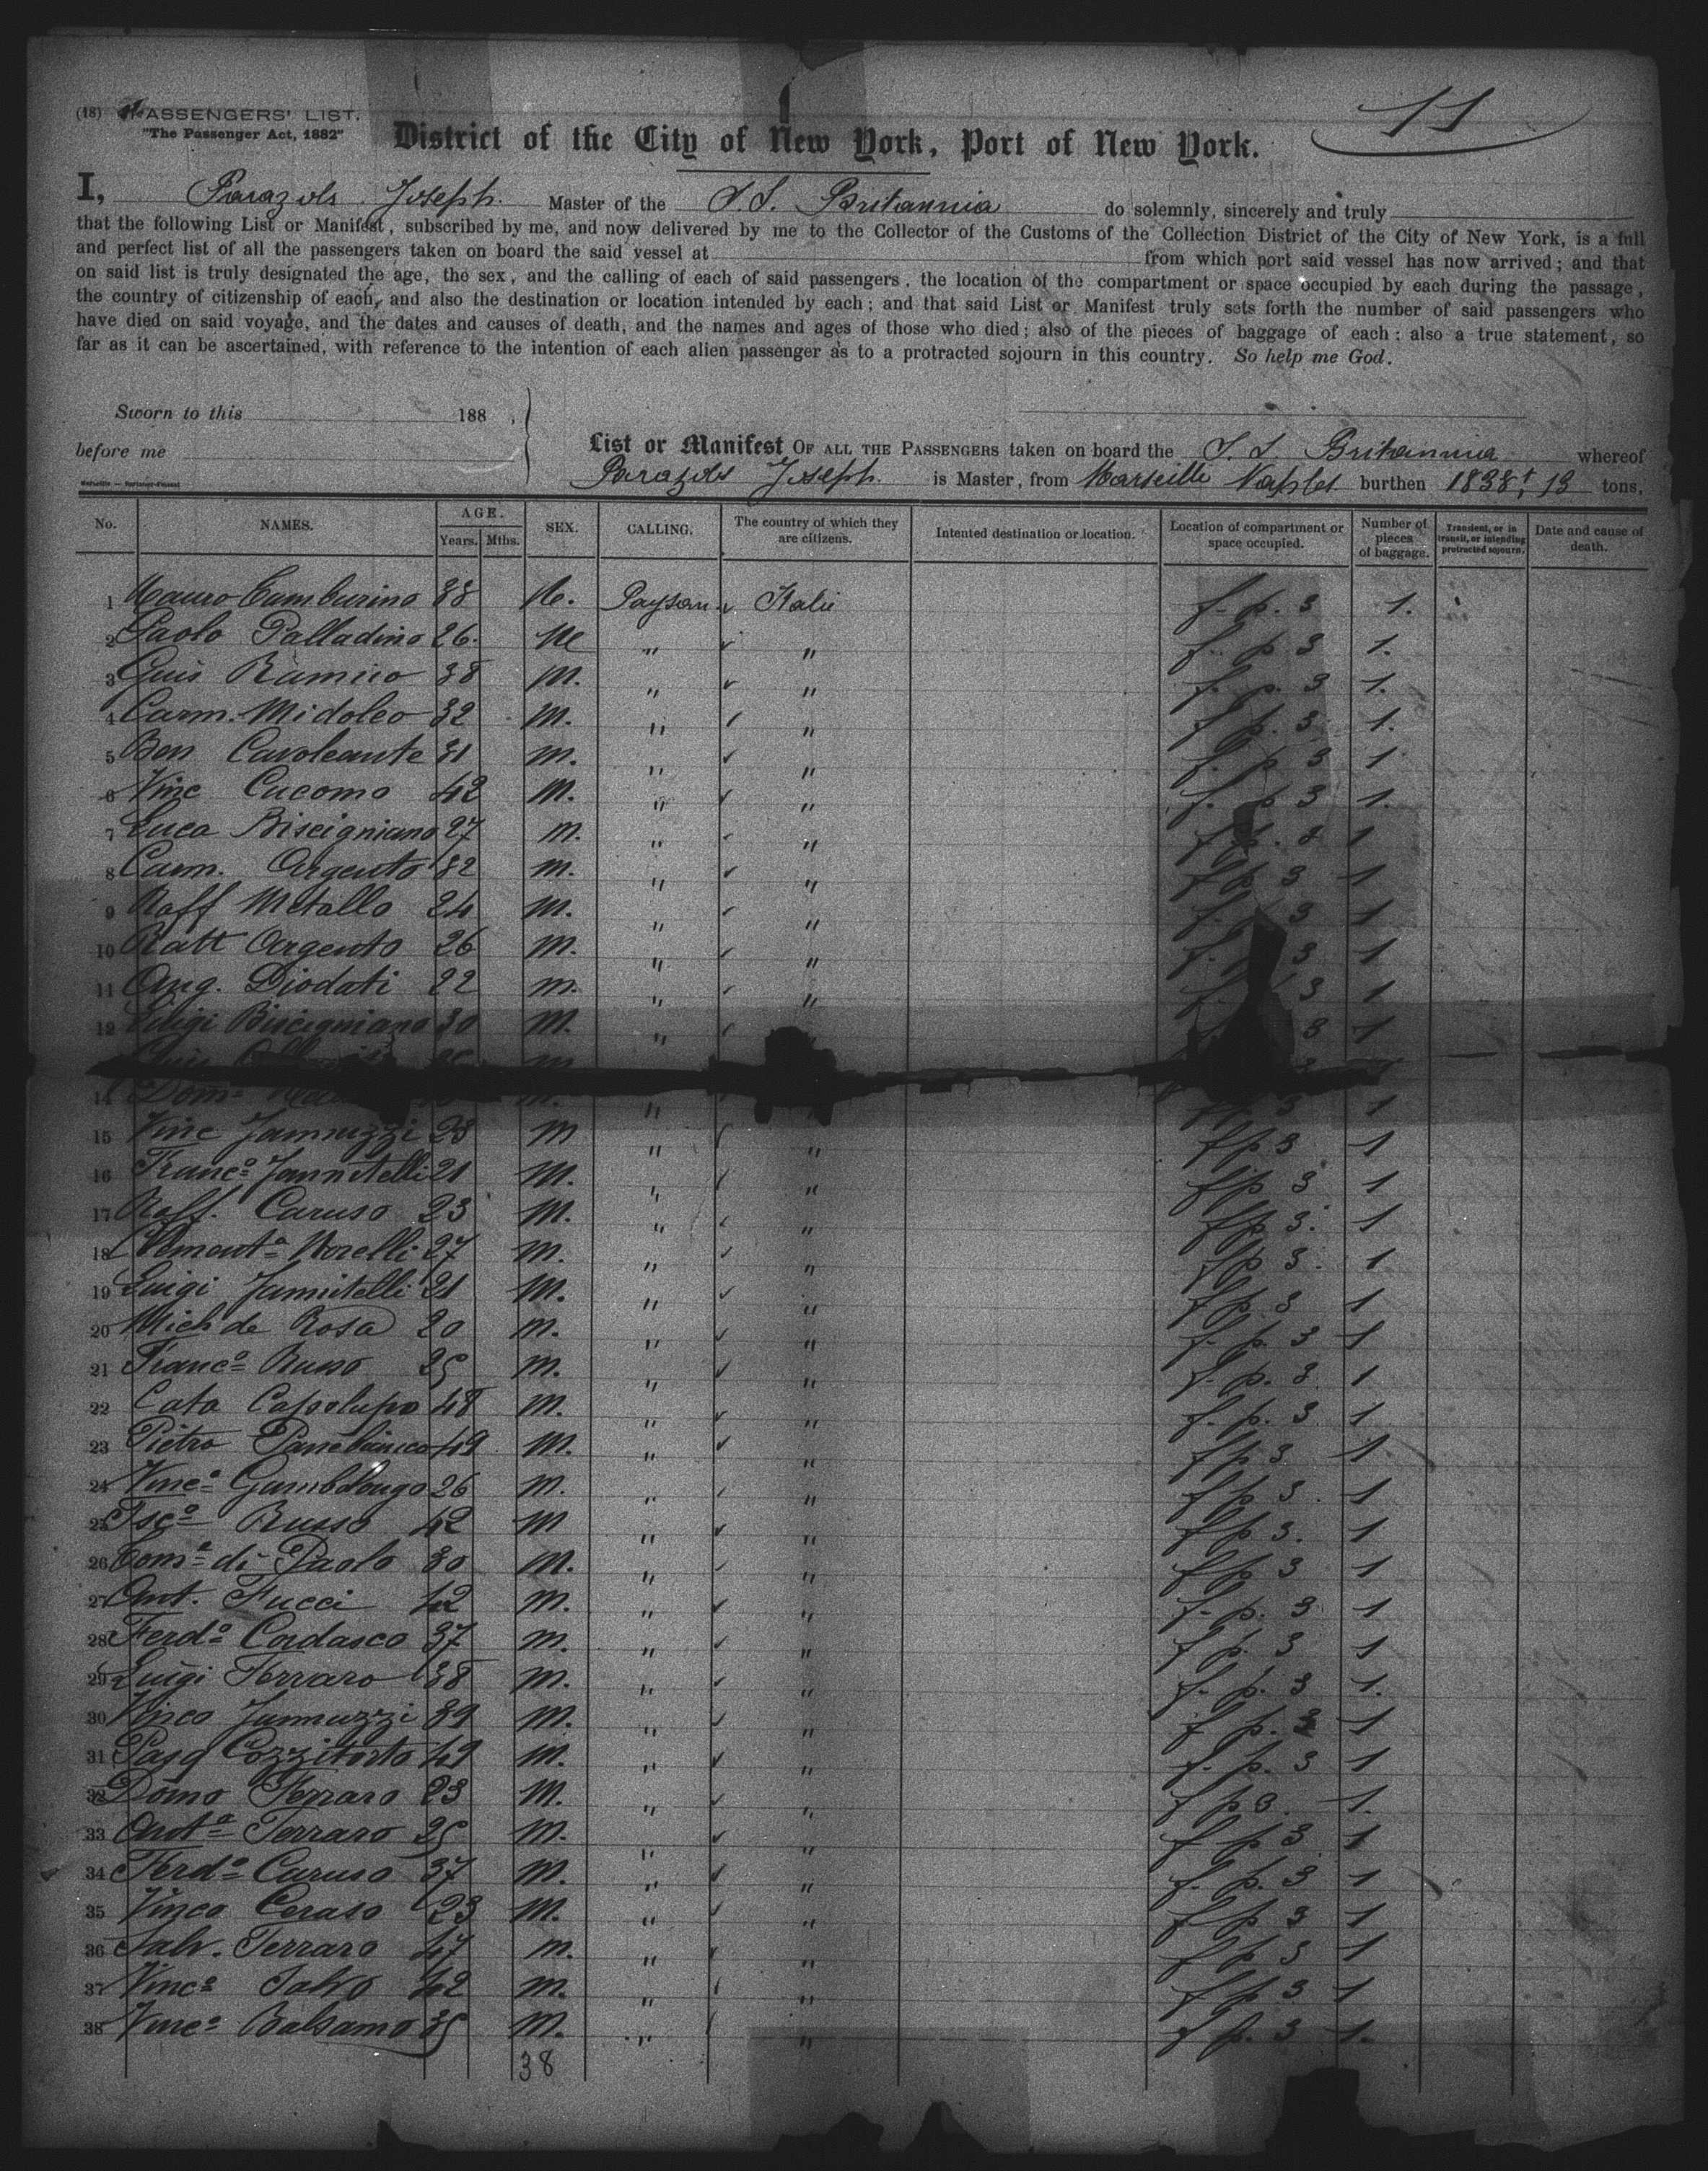 (18) PASSENGERS' LIST.
"The Passenger Act, 1882"
11
District of the City of New York, Port of New York.
I, Parazols Joseph Master of the S.S. Britannia do solemnly, sincerely and truly
that the following List or Manifest, subscribed by me, and now delivered by me to the Collector of the Customs of the Collection District of the City of New York, is a full
and perfect list of all the passengers taken on board the said vessel at from which port said vessel has now arrived; and that
on said list is truly designated the age, the sex, and the calling of each of said passengers, the location of the compartment or space occupied by each during the passage,
the country of citizenship of each, and also the destination or location intended by each; and that said List or Manifest truly sets forth the number of said passengers who
have died on said voyage, and the dates and causes of death, and the names and ages of those who died; also of the pieces of baggage of each; also a true statement, so
far as it can be ascertained, with reference to the intention of each alien passenger as to a protracted sojourn in this country. So help me God.
Sworn to this 188 ,
before me
List or Manifest OF ALL THE PASSENGERS taken on board the S. S. Britannia whereof
Parazols Joseph is Master, from Marseille Naples burthen 1838t, 13 tons,
No. NAMES. AGE. Years. Mths. SEX. CALLING. The country of which they are citizens. Intented destination or location. Location of compartment or space occupied. Number of pieces of baggage. Transient, or in transit, or intending protracted sojourn. Date and cause of death.
1 Mauro Cumburino 38 M. Paysan Italie f. p. 3 1.
2 Paolo Palladino 26. M " " f. p. 3 1.
3 Guis Ramico 38 M. " " f. p. 3 1.
4 Carm. Midoleo 32 M. " " f. p. 3. 1.
5 Ben Cavoleante 31 M. " " f. p 3 1.
6 Vinc Cucomo 42 M. " " f. p 3 1.
7 Luca Biscigniano 27 M. " " f p. 3 1
8 Carm. Argento 32 M. " " f p 3 1
9 Raff Metallo 24 M. " " f. 3 1
10 Raff Argento 26 M. " " f. 3 1
11 Ang. Diodati 22 M. " " f. 3 1
12 Luigi Biscigniano 30 M. " 3 1
14 Dom. M. " f p 3 1
15 Vinc Jannuzzi 28 M " " f p 3 1
16 Franco Jannitelli 21 M. " " f p 3 1
17 Raff. Caruso 23 M. " " f p 3. 1
18 Clementa Morelli 27 M. " " f p 3. 1
19 Luigi Jannitelli 21 M. " " f p. 3 1
20 Mich de Rosa 20 M. " " f. p. 3 1
21 Franco Russo 25 M. " " f. p. 3 1
22 Cata Capolupo 48 M. " " f. p. 3 1
23 Pietro Panebianco 49 M. " " f p 3. 1
24 Vinco Gambolongo 26 M. " " f p 3. 1
25 Fsco Russo 42 M " " f p 3. 1
26 Toma di Paolo 30 M. " " f p 3 1
27 Ant. Fucci 42 M. " " f. p. 3 1
28 Ferdo Cordasco 37 M. " " f p. 3 1
29 Luigi Ferraro 38 M. " " f. p. 3 1.
30 Vinco Jannuzzi 39 M. " " f p. 3 1
31 Pasq Cozzitorto 49 M. " " f. p. 3 1
32 Domo Ferraro 23 M. " " f p 3. 1.
33 Anto Ferraro 25 M. " " f p 3. 1
34 Ferdo Caruso 37 M. " " f. p. 3 1
35 Vinco Ceraso 23 M. " " f p 3 1
36 Salv. Ferraro 47 M. " " f p 3 1
37 Vinco Salvo 42 M. " " f p 3 1
38 Vinco Balsamo 35 M. " " f p. 3 1.
38